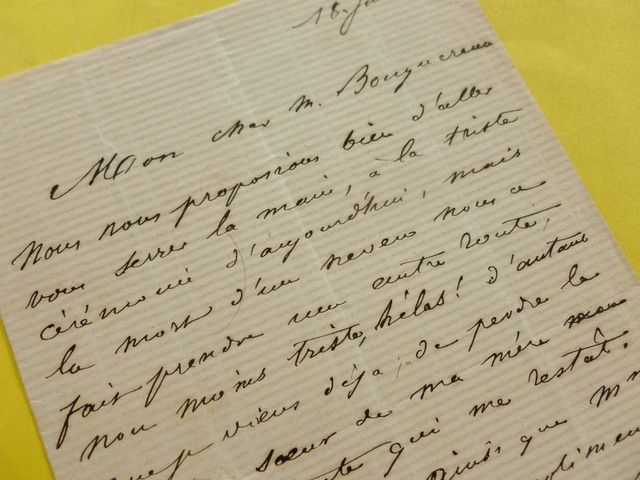 18
Mon cher M. Bouguereau
Nous nous proposions bien d'aller
vous serrer la main, à la triste
cérémonie d'aujourd'hui, mais
la mort d'un neveu nous a
fait prendre une autre route,
non moins triste, hélas! d'autant
que je viens déjà, de perdre la
sœur de ma mère
qui me restât.
Ainsi que